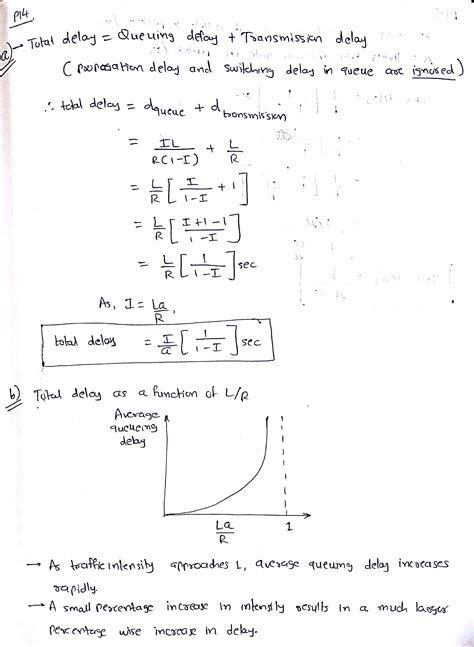 P14.
a) → Total delay = Queuing delay + Transmission delay
(propagation delay and switching delay in queue are ignored)
∴ total delay = d_queue + d_transmission
= IL/R(1-I) + L/R
= L/R [I/1-I + 1]
= L/R [I+1-I/1-I]
= L/R [1/1-I] sec
As, I = La/R,
total delay = I/a [1/1-I] sec
b) Total delay as a function of L/R
Average
queueing
delay
La/R 1
→ As traffic intensity approaches 1, average queuing delay increases
rapidly.
→ A small percentage increase in intensity results in a much larger
percentage wise increase in delay.